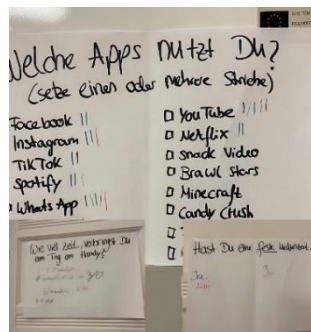 Welche Apps nutzt Du?
(setze einen oder mehrere Striche)
Facebook
Instagram
TikTok
Spotify
WhatsApp
YouTube
Netflix
snack Video
Brawl Stars
Minecraft
Candy Crush
Wie viel Zeit verbringst Du
am Tag am Handy?
Hast Du eine feste